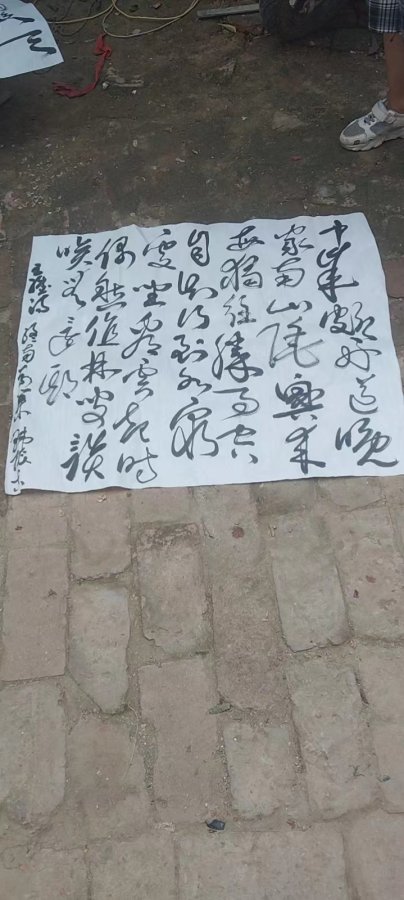 中歲頗好道晚
家南山陲興來
每獨往勝事空
自知行到水窮
處坐看雲起時
偶然值林叟談
笑無還期
王維詩 終南